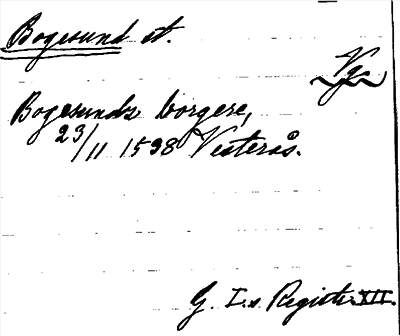 Bogesund st.
Vg.
Bogesunds borgere,
23/11 1538 Vesterås.
G. I.s Registr. XII.